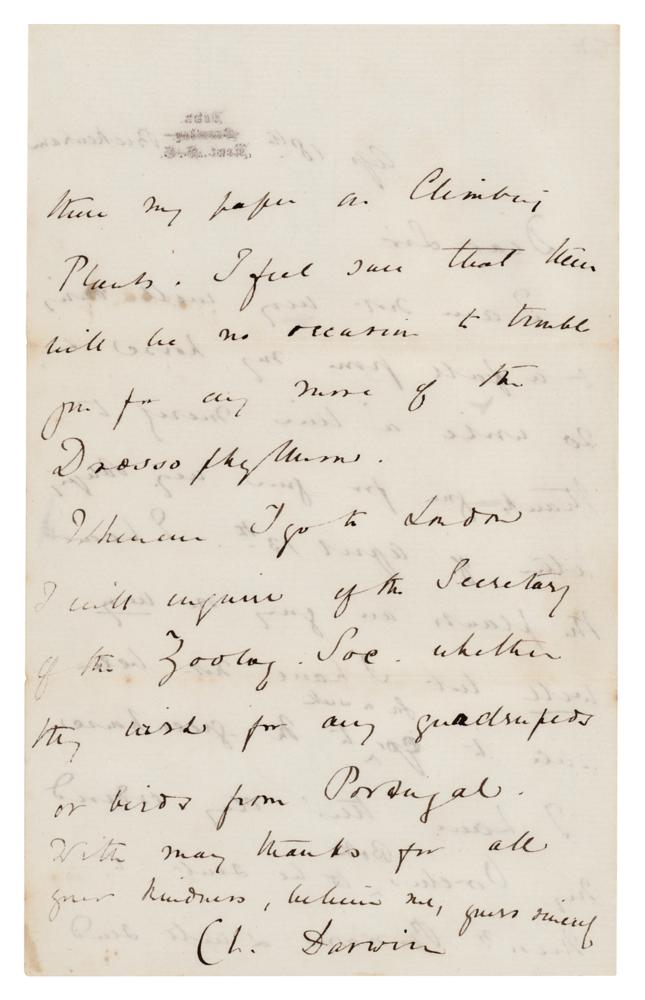 there my paper on Climbing
Plants. I feel sure that there
will be no occasion to trouble
you for any more of the
Drosophyllum.
Whenever I go to London
I will enquire of the Secretary
of the Zoolog. Soc. whether
they wish for any quadrupeds
or birds from Portugal.
With many thanks for all
your kindness, believe me, yours sincerely
Ch. Darwin